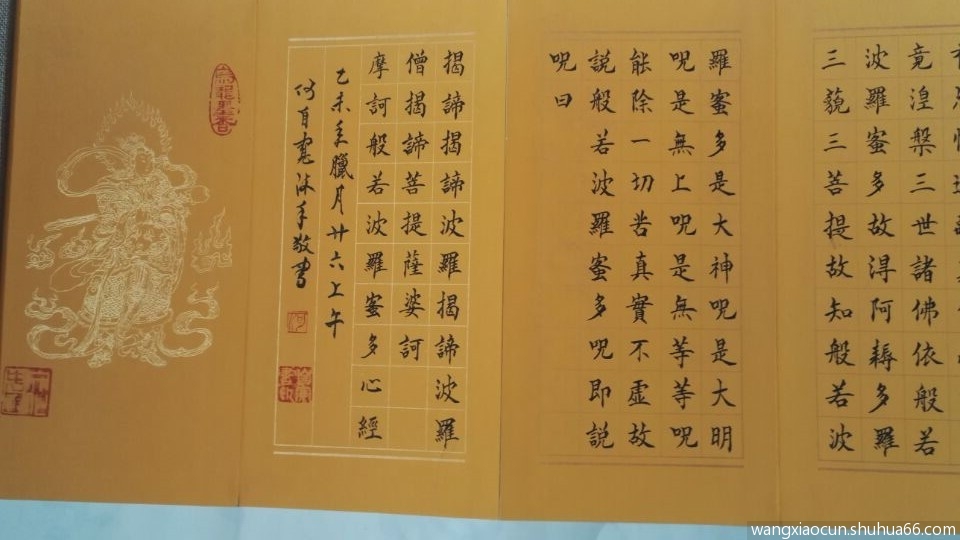 竟湼槃三世諸佛依般若
波羅蜜多故得阿耨多羅
三藐三菩提故知般若波
羅蜜多是大神呪是大明
呪是無上呪是無等等呪
能除一切苦真實不虛故
說般若波羅蜜多呪即說
呪曰
揭諦揭諦波羅揭諦波羅
僧揭諦菩提薩婆訶
摩訶般若波羅蜜多心經
乙未年臘月廿六上午
沐手敬書
何
wangxiaocun.shuhua66.com